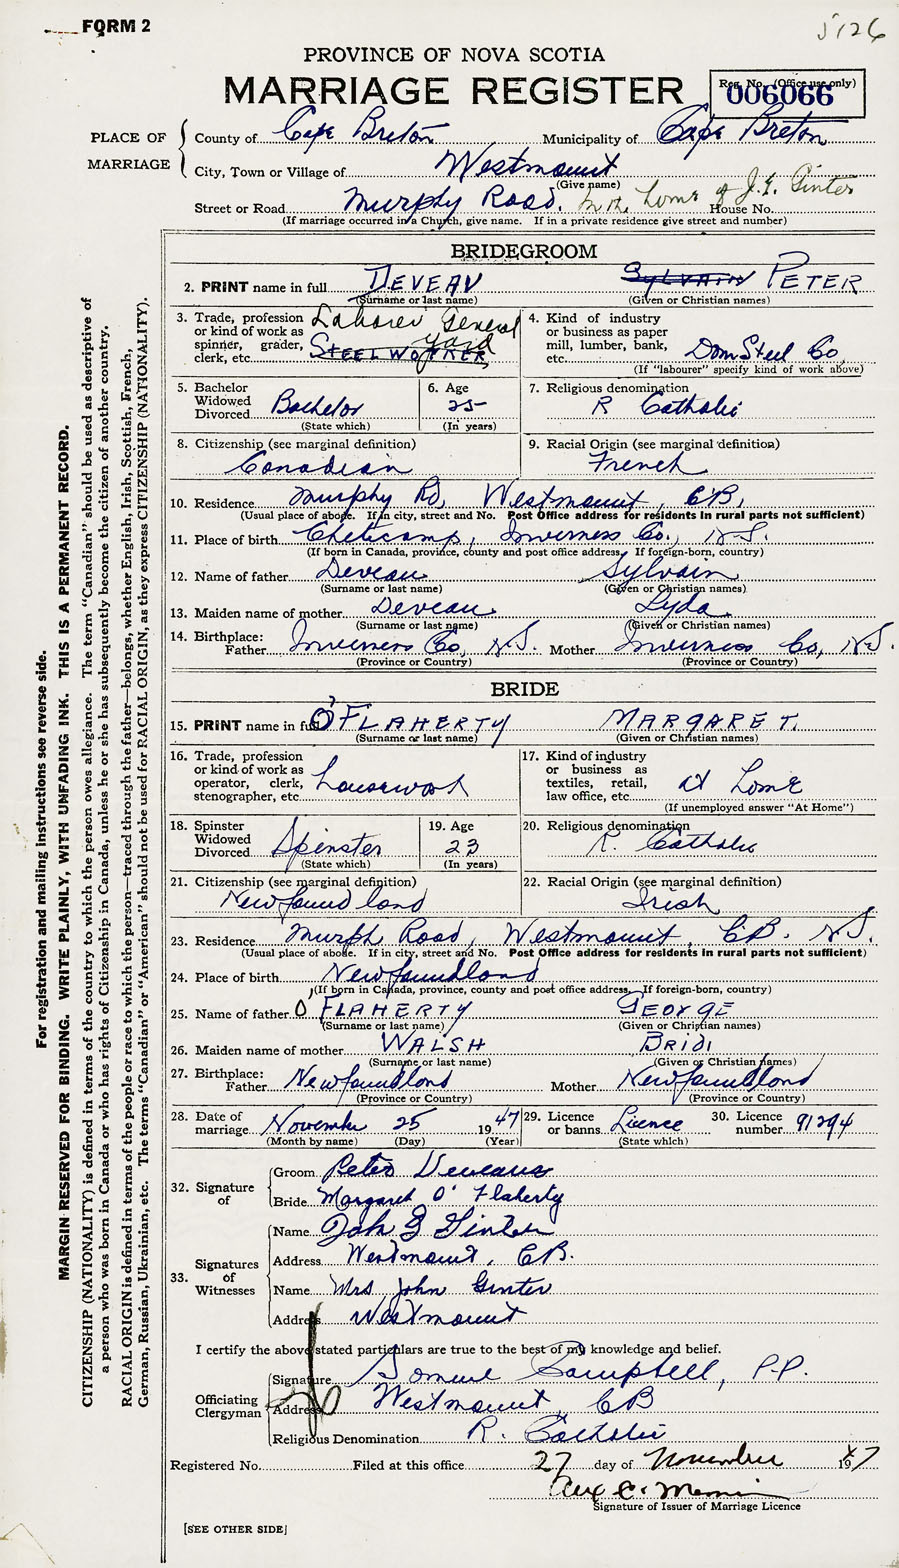 FORM 2
5126
PROVINCE OF NOVA SCOTIA
MARRIAGE REGISTER
Reg. No. (Office use only)
006066
PLACE OF MARRIAGE
County of Cape Breton Municipality of Cape Breton
City, Town or Village of Westmount
(Give name)
Street or Road Murphy Road. In the home of J. G. Ginter House No.
(If marriage occurred in a Church, give name. If in a private residence give street and number)
BRIDEGROOM
2. PRINT name in full DEVEAU SYLVAIN PETER
(Surname or last name) (Given or Christian names)
3. Trade, profession or kind of work as spinner, grader, clerk, etc. Laborer General Yard STEELWORKER
4. Kind of industry or business as paper mill, lumber, bank, etc. Dom Steel Co,
(If "labourer" specify kind of work above)
5. Bachelor Widowed Divorced Bachelor
(State which)
6. Age 25
(In years)
7. Religious denomination
R Catholic
8. Citizenship (see marginal definition)
Canadian
9. Racial Origin (see marginal definition)
French
10. Residence Murphy Rd, Westmount, CB,
(Usual place of abode. If in city, street and No. Post Office address for residents in rural parts not sufficient)
11. Place of birth Cheticamp, Inverness Co., N.S.
(If born in Canada, province, county and post office address. If foreign-born, country)
12. Name of father Deveau Sylvain
(Surname or last name) (Given or Christian names)
13. Maiden name of mother Deveau Lyda
(Surname or last name) (Given or Christian names)
14. Birthplace:
Father Inverness Co, N.S. Mother Inverness Co, N.S.
(Province or Country) (Province or Country)
BRIDE
15. PRINT name in full O'FLAHERTY MARGARET.
(Surname or last name) (Given or Christian names)
16. Trade, profession or kind of work as operator, clerk, stenographer, etc. housework
17. Kind of industry or business as textiles, retail, law office, etc. at home
(If unemployed answer "At Home")
18. Spinster Widowed Divorced Spinster
(State which)
19. Age 23
(In years)
20. Religious denomination
R. Catholic
21. Citizenship (see marginal definition)
Newfoundland
22. Racial Origin (see marginal definition)
Irish
23. Residence Murph Road, Westmount, CB. N.S.
(Usual place of abode. If in city, street and No. Post Office address for residents in rural parts not sufficient)
24. Place of birth Newfoundland
(If born in Canada, province, county and post office address. If foreign-born, country)
25. Name of father O'FLAHERTY GEORGE
(Surname or last name) (Given or Christian names)
26. Maiden name of mother WALSH BRIDI
(Surname or last name) (Given or Christian names)
27. Birthplace:
Father Newfoundland Mother Newfoundland
(Province or Country) (Province or Country)
28. Date of marriage November 25 1947
(Month by name) (Day) (Year)
29. Licence or banns Licence
(State which)
30. Licence number 91294
32. Signature of
Groom Peter Deveau
Bride Margaret O'Flaherty
33. Signatures of Witnesses
Name John G Ginter
Address Westmount, CB.
Name Mrs John Ginter
Address Westmount
I certify the above stated particulars are true to the best of my knowledge and belief.
Officiating Clergyman
Signature Campbell, P.P.
Address Westmount, CB
Religious Denomination R. Catholic
Registered No. Filed at this office 27 day of November 1947
Signature of Issuer of Marriage Licence
[SEE OTHER SIDE]
For registration and mailing instructions see reverse side.
MARGIN RESERVED FOR BINDING. WRITE PLAINLY, WITH UNFADING INK. THIS IS A PERMANENT RECORD.
CITIZENSHIP (NATIONALITY) is defined in terms of the country to which the person owes allegiance. The term "Canadian" should be used as descriptive of
a person who was born in Canada or who has rights of Citizenship in Canada, unless he or she has subsequently become the citizen of another country.
RACIAL ORIGIN is defined in terms of the people or race to which the person—traced through the father—belongs, whether English, Irish, Scottish, French,
German, Russian, Ukrainian, etc. The terms "Canadian" or "American" should not be used for RACIAL ORIGIN, as they express CITIZENSHIP (NATIONALITY).